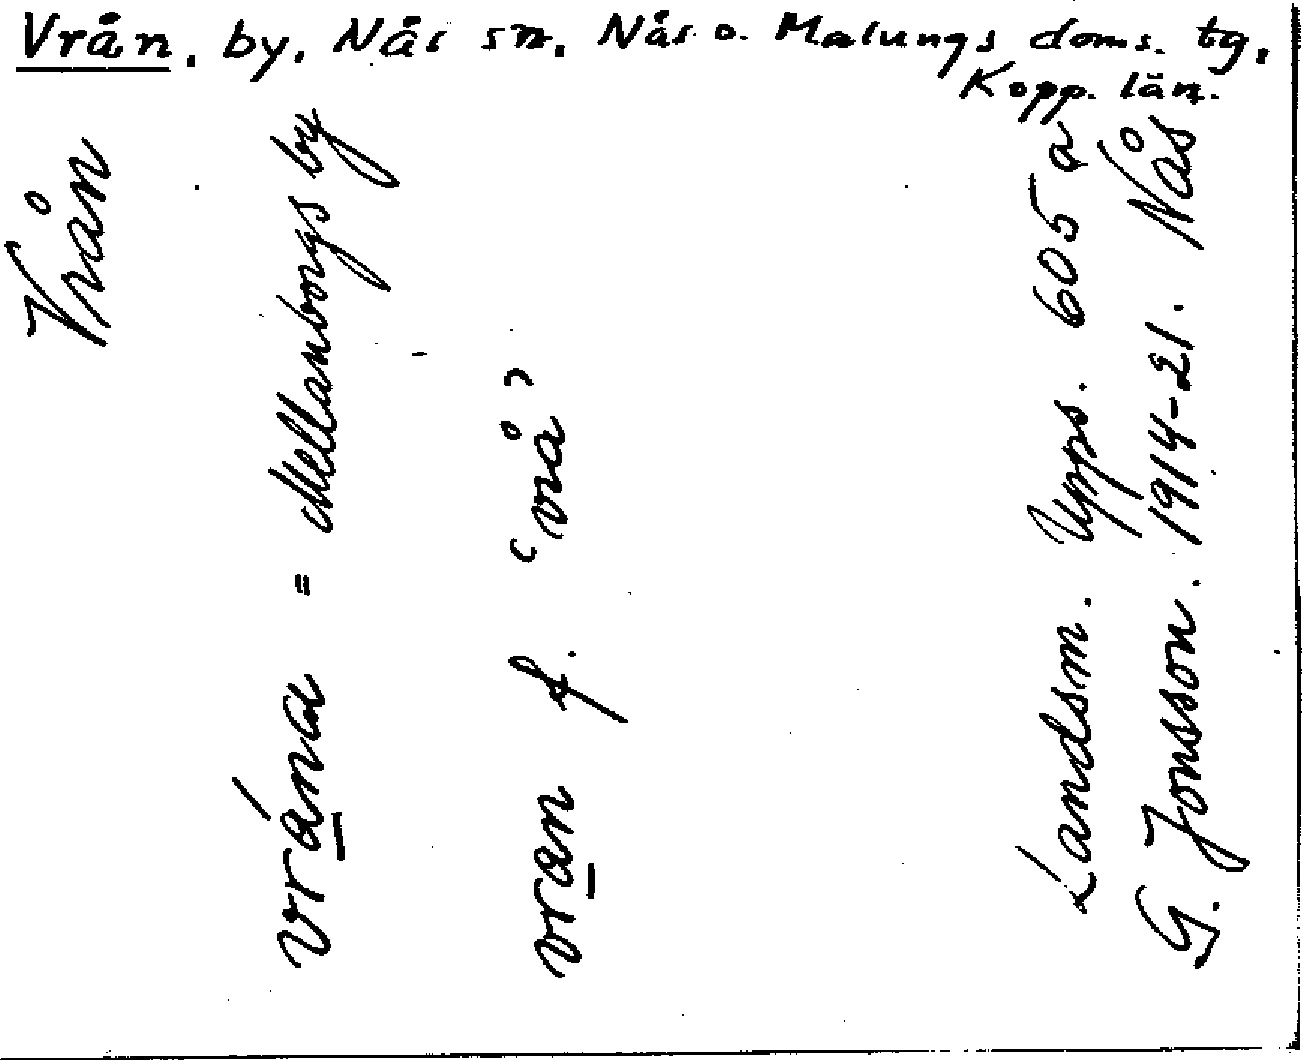 Vrån, by, Nås sn, Nås o. Malungs doms. tg,
Kopp. län.
Vrån
vrána = Mellanborgs by
vran f. 'vrå'
Landsm. Upps. 605 a
G. Jonsson. 1914-21. Nås